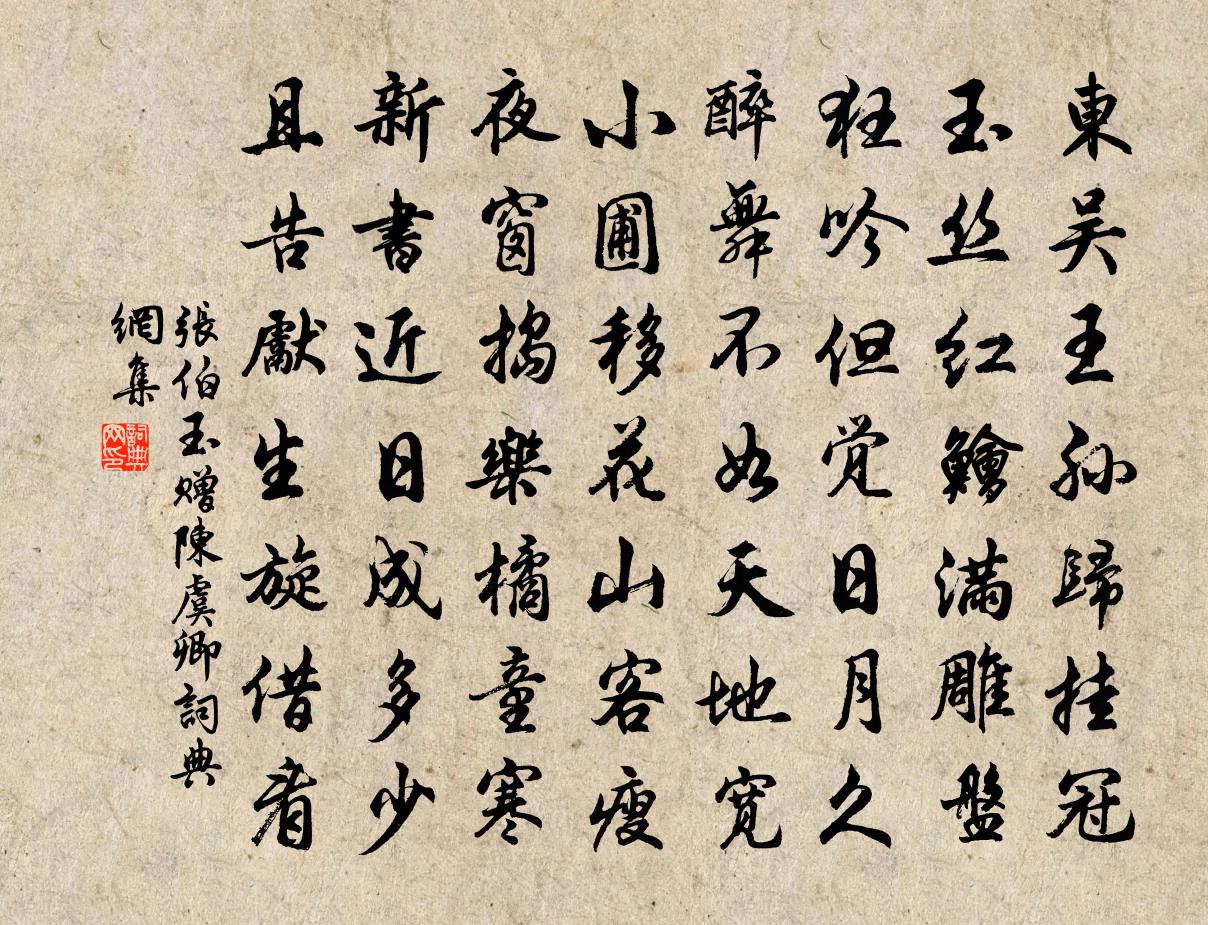 東吴王孙歸挂冠
玉丝红鱠滿雕盤
狂吟但觉日月久
醉舞不如天地宽
小圃移花山客瘦
夜窗搗樂橘童寒
新書近日成多少
且告獻生旋借看
張伯玉赠陳虞卿詞典
網集
詞典网印